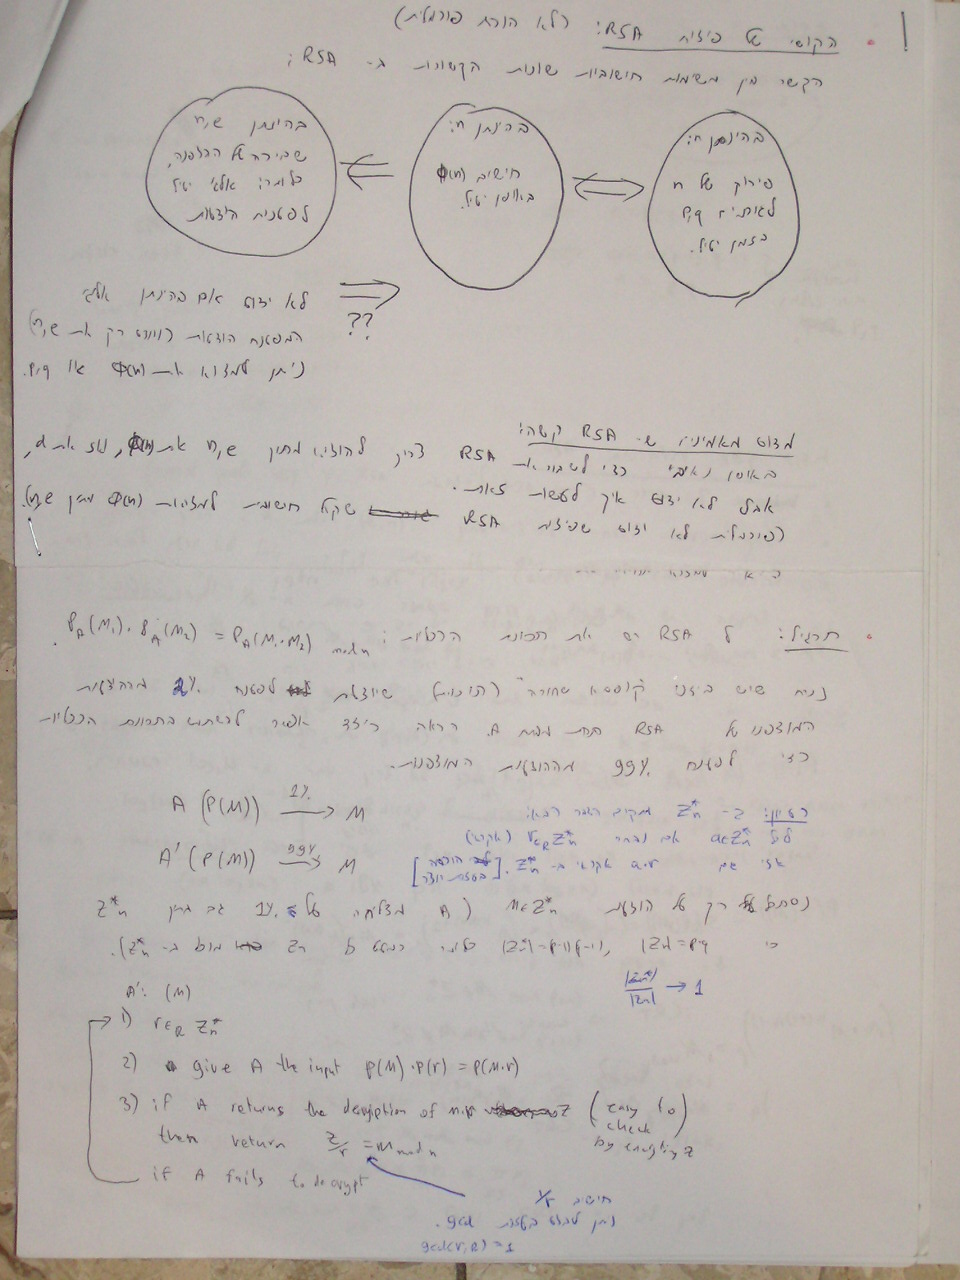 הקושי של פיצוח RSA: (לא הוכח פורמלית)
הקשר בין משימות חישוביות שונות הקשורות ב- RSA:
בהינתן n:
פירוק של n
לגורמים p,q
בזמן יעיל.
בהינתן n:
חישוב φ(n)
באופן יעיל.
בהינתן e,n
שבירה של הצפנה,
כלומר: אלג' יעיל
לפענוח הודעות
??
לא ידוע אם בהינתן אלג'
המפענח הודעות (ויודע רק את e,n)
ניתן למצוא את φ(n) או p,q.
מדוע מאמינים ש- RSA קשה:
באופן נאיבי כדי לשבור את RSA צריך להוציא מתוך e,n את φ(n), ואז את d,
אבל לא ידוע איך לעשות זאת.
(פורמלית לא ידוע שפיצוח RSA שקול חישובית למציאת φ(n) מתוך e,n).
תרגיל: ל RSA יש את תכונת הכפליות: P_A(M₁)·P_A(M₂) = P_A(M₁·M₂) mod n.
נניח שיש בידנו "קופסא שחורה" (תוכנית) שיודעת לפענח 1% מההודעות
המוצפנות של RSA תחת מפתח A. הראה כיצד אפשר להשתמש בתכונת הכפליות
כדי לפענח 99% מההודעות המוצפנות.
A (P(M)) —1%→ M
A' (P(M)) —99%→ M
רעיון: ב- Zn* מתקיים הדבר הבא:
לכל a∈Zn* אם נבחר r∈R Zn* (אקראי)
אזי גם r·a אקראי ב- Zn*.
נסתכל רק על הודעות M∈Zn* (A מצליחה על ≈1% גם מתוך Zn*
כי |Zn|=pq, |Zn*|=(p-1)(q-1), כלומר כמעט כל Zn מוכל ב- Zn*).
|Zn*|/|Zn| → 1
A': (M)
1) r∈R Zn*
2) give A the input P(M)·P(r) = P(M·r)
3) if A returns the decryption of M·r Z (easy to check by encrypting Z)
then return Z/r = M mod n
if A fails to decrypt
חישוב 1/r
ניתן לבצע בעזרת gcd.
gcd(r,n) = 1